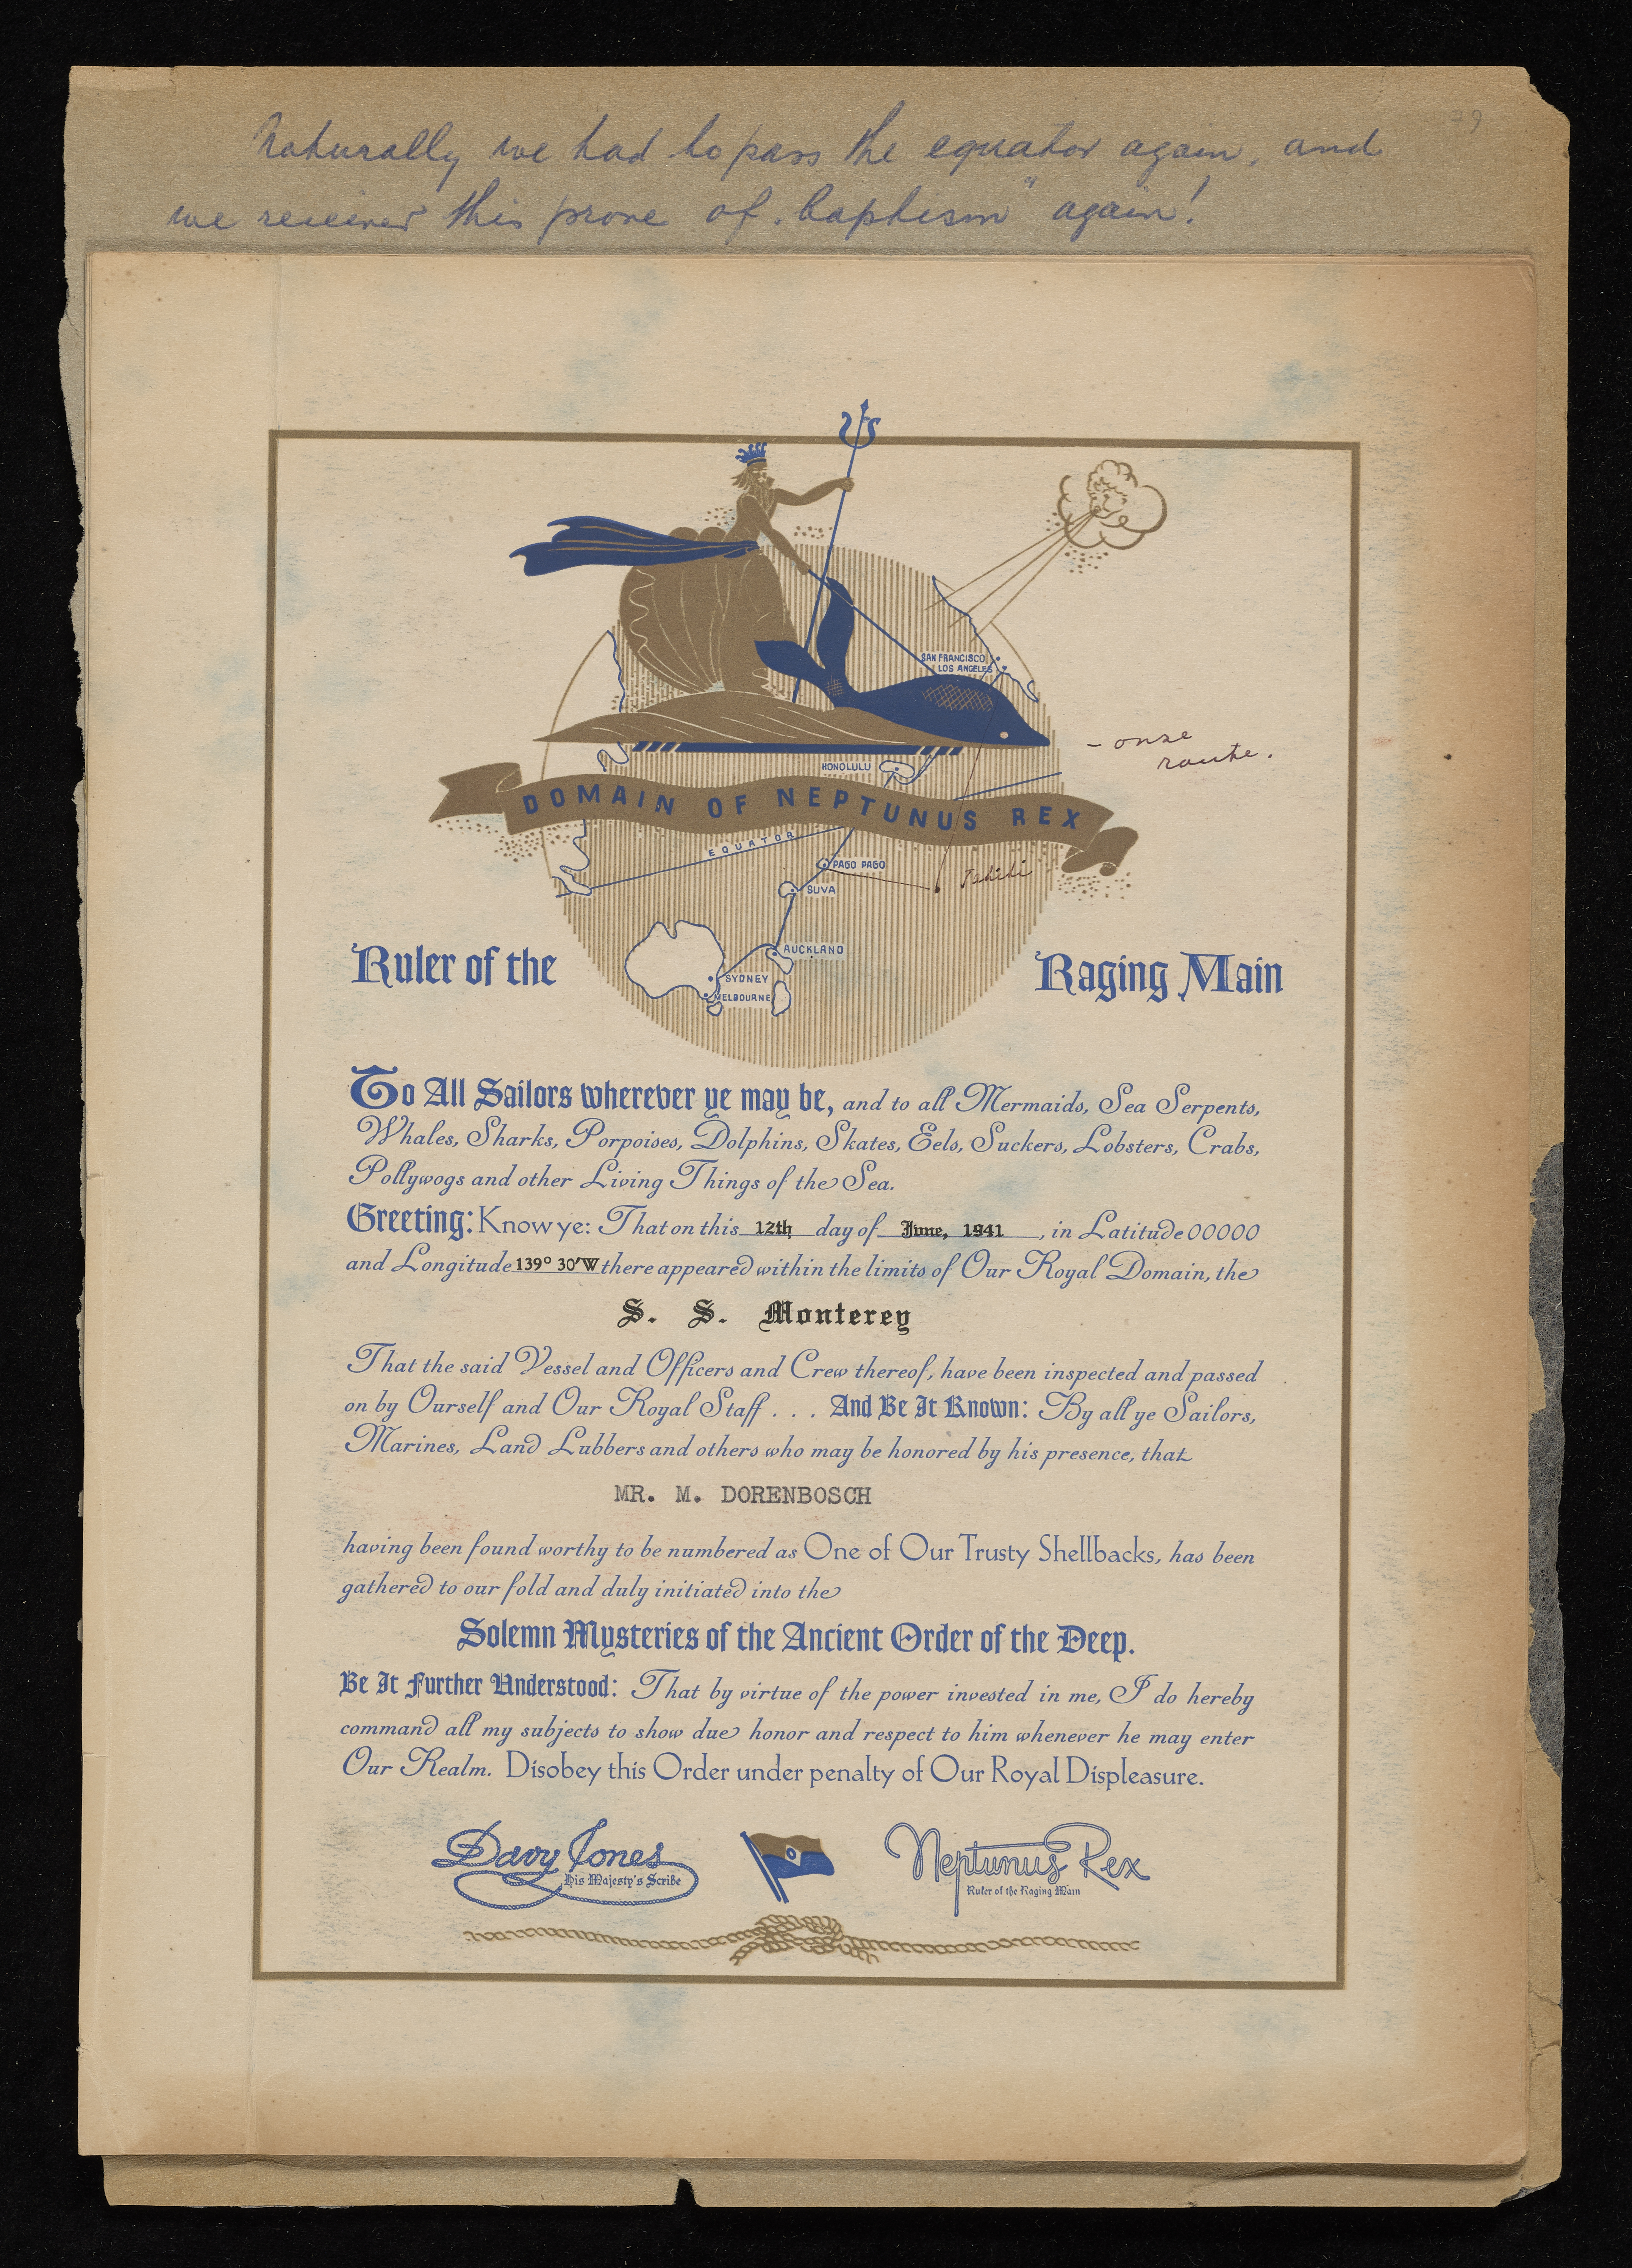 79
Naturally we had to pass the equator again, and
we received this prove of „baptism" again!
SAN FRANCISCO
LOS ANGELES
- onze
route.
HONOLULU
DOMAIN OF NEPTUNUS REX
EQUATOR
PAGO PAGO
Tahiti
SUVA
AUCKLAND
SYDNEY
MELBOURNE
Ruler of the Raging Main
To All Sailors wherever ye may be, and to all Mermaids, Sea Serpents,
Whales, Sharks, Porpoises, Dolphins, Skates, Eels, Suckers, Lobsters, Crabs,
Pollywogs and other Living Things of the Sea.
Greeting: Know ye: That on this 12th day of June, 1941, in Latitude 00000
and Longitude 139° 30'W there appeared within the limits of Our Royal Domain, the
S. S. Monterey
That the said Vessel and Officers and Crew thereof, have been inspected and passed
on by Ourself and Our Royal Staff . . . And Be It Known: By all ye Sailors,
Marines, Land Lubbers and others who may be honored by his presence, that
MR. M. DORENBOSCH
having been found worthy to be numbered as One of Our Trusty Shellbacks, has been
gathered to our fold and duly initiated into the
Solemn Mysteries of the Ancient Order of the Deep.
Be It Further Understood: That by virtue of the power invested in me, I do hereby
command all my subjects to show due honor and respect to him whenever he may enter
Our Realm. Disobey this Order under penalty of Our Royal Displeasure.
Davy Jones
His Majesty's Scribe
Neptunus Rex
Ruler of the Raging Main